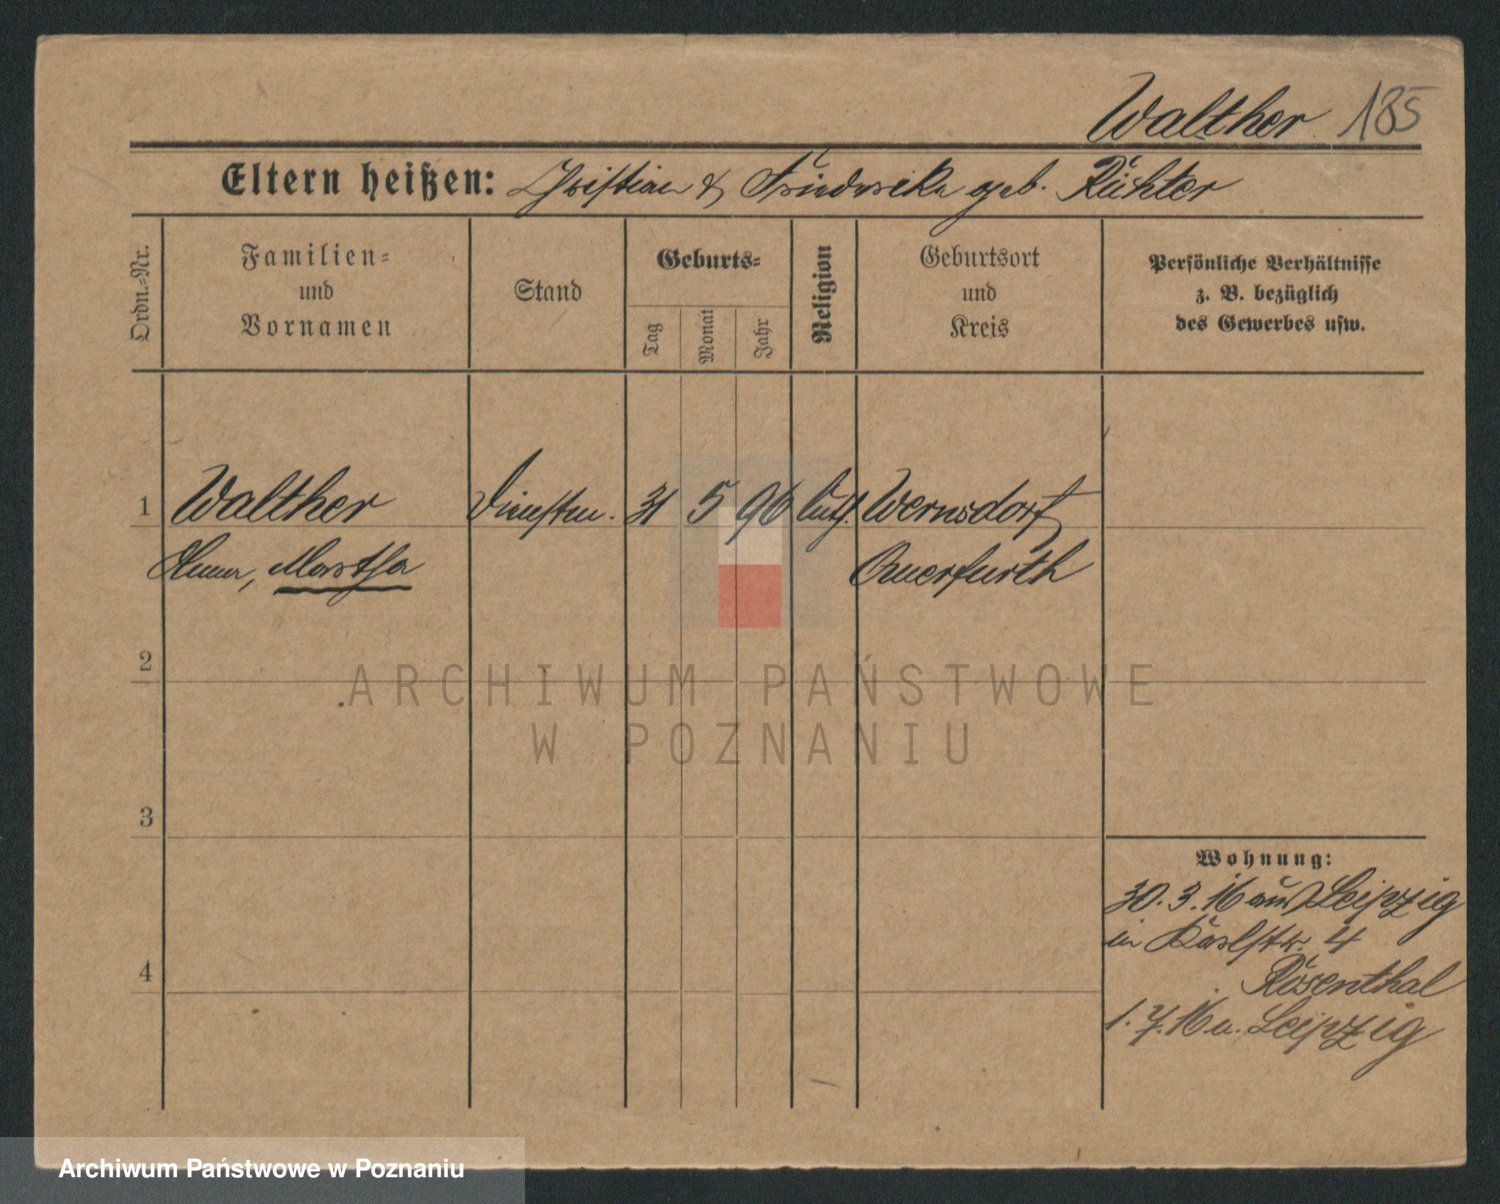 Walther 185
Eltern heißen: Christian & Friederike geb. Richter
Ordn.-Nr.
Familien-
und
Vornamen
Stand
Geburts-
Tag
Monat
Jahr
Religion
Geburtsort
und
Kreis
Persönliche Verhältnisse
z. B. bezüglich
des Gewerbes usw.
1 Walther Dienstm. 31 5 96 luth. Wernsdorf
Anna, Martha Querfurth
2
ARCHIWUM PAŃSTWOWE
W POZNANIU
3
Wohnung:
30.3.16 aus Leipzig
in Karlstr. 4
4
Rosenthal
1.7.16 n. Leipzig
Archiwum Państwowe w Poznaniu